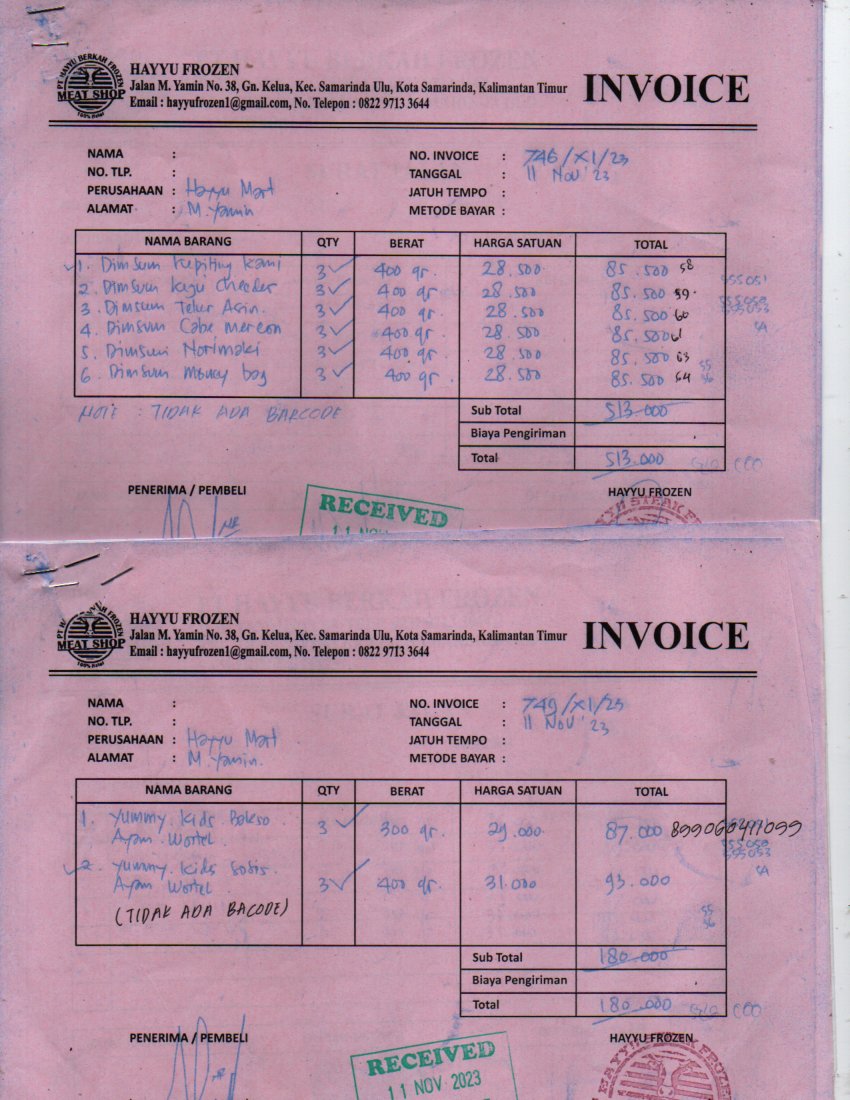 PT HAYYU BERKAH FROZEN
MEAT SHOP
100% Halal
HAYYU FROZEN
Jalan M. Yamin No. 38, Gn. Kelua, Kec. Samarinda Ulu, Kota Samarinda, Kalimantan Timur
Email : hayyufrozen1@gmail.com, No. Telepon : 0822 9713 3644
INVOICE
NAMA :
NO. TLP. :
PERUSAHAAN : Hayyu Mart
ALAMAT : M. Yamin
NO. INVOICE : 746/XI/23
TANGGAL : 11 Nov '23
JATUH TEMPO :
METODE BAYAR :
NAMA BARANG QTY BERAT HARGA SATUAN TOTAL
1. Dimsum Kepiting Kani 3 400 gr. 28.500 85.500 58
2. Dimsum Keju Chedder 3 400 gr. 28.500 85.500 59
3. Dimsum Telur Asin. 3 400 gr. 28.500 85.500 60
4. Dimsum Cabe mercon 3 400 gr. 28.500 85.500 61
5. Dimsum Norimaki 3 400 gr. 28.500 85.500 63
6. Dimsum Money bag 3 400 gr. 28.500 85.500 64
NOTE : TIDAK ADA BARCODE
Sub Total 513.000
Biaya Pengiriman
Total 513.000
PENERIMA / PEMBELI
HAYYU FROZEN
RECEIVED
11 NOV
MEAT SHOP
100% Halal
HAYYU FROZEN
Jalan M. Yamin No. 38, Gn. Kelua, Kec. Samarinda Ulu, Kota Samarinda, Kalimantan Timur
Email : hayyufrozen1@gmail.com, No. Telepon : 0822 9713 3644
INVOICE
NAMA :
NO. TLP. :
PERUSAHAAN : Hayyu Mart
ALAMAT : M. Yamin.
NO. INVOICE : 749/XI/23
TANGGAL : 11 NOV '23
JATUH TEMPO :
METODE BAYAR :
NAMA BARANG QTY BERAT HARGA SATUAN TOTAL
1. Yummy Kids Bakso 3 300 gr. 29.000 87.000 899060411099
Ayam Wortel
2. Yummy Kids Sosis 3 400 gr. 31.000 93.000
Ayam Wortel
(TIDAK ADA BACODE)
Sub Total 180.000
Biaya Pengiriman
Total 180.000
PENERIMA / PEMBELI
HAYYU FROZEN
RECEIVED
11 NOV 2023